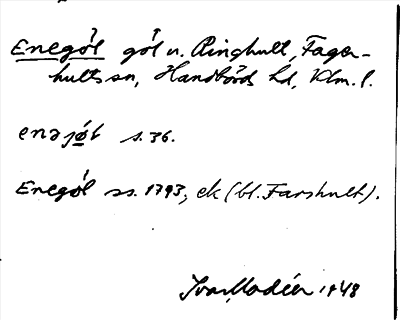 Enegöl göl n. Ringhult, Fager-
hults sn, Handbörds hd, Klm. l.
enəjø̀l s. 36.
Enegöl ss. 1793, ek (bl. Farshult).
Ivar Modéer 1948